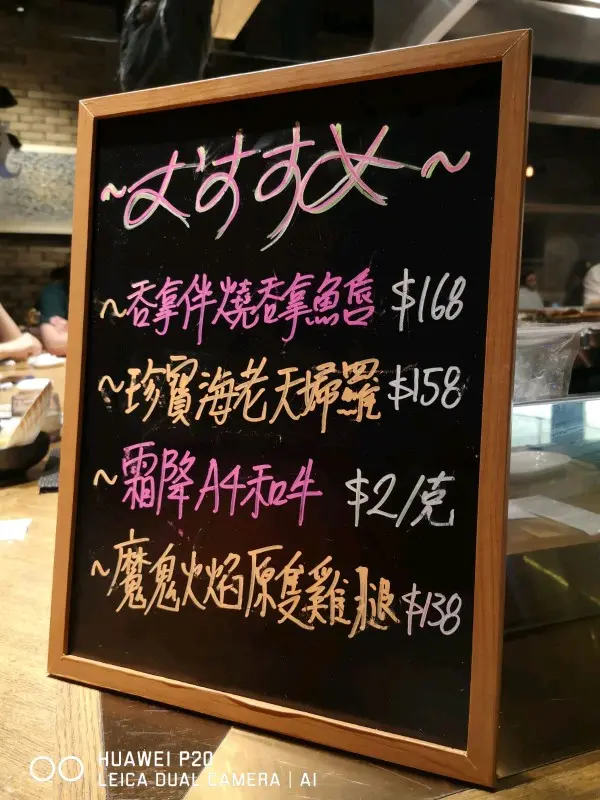 ~おすすめ~
~吞拿伴燒吞拿魚 $168
~珍寶海老天婦羅 $158
~霜降A4和牛 $2/克
~魔鬼火焰原隻雞腿 $138
HUAWEI P20
LEICA DUAL CAMERA | AI